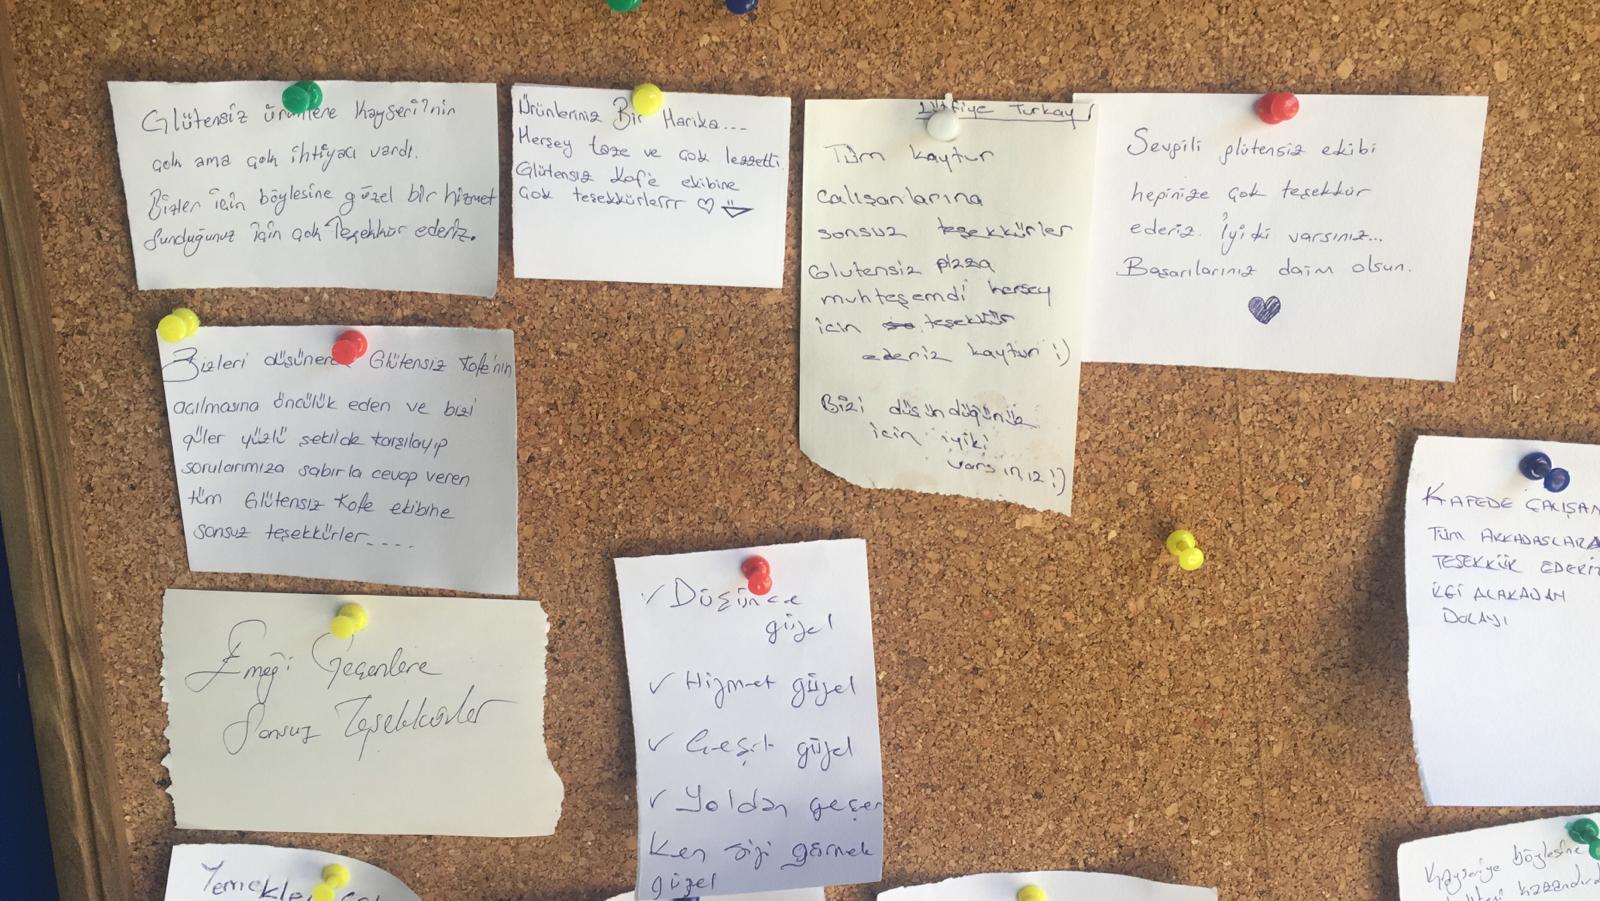 Glütensiz ürünlere Kayseri'nin
çok ama çok ihtiyacı vardı.
Bizler için böylesine güzel bir hizmet
Sunduğunuz için çok Teşekkür ederiz.
Ürünleriniz Bir Harika...
Herşey taze ve çok lezzetli.
Glütensiz Kafe ekibine
Çok teşekkürlerrr
Lütfiye Turkay
Tüm kaytur
calışanlarına
sonsuz teşekkürler
Glutensiz pizza
muhteşemdi hersey
için teşekkür
ederiz kaytur :)
Bizi düşündüğünük
için iyiki
varsınız :)
Sevgili glütensiz ekibi
hepinize çok teşekkür
ederiz. İyiki varsınız...
Başarılarınız daim olsun.
Bizleri düşünerek Glütensiz Kafe'nin
açılmasına öncülük eden ve bizi
güler yüzlü şekilde karşılayıp
sorularımıza sabırla cevap veren
tüm Glütensiz Kafe ekibine
sonsuz teşekkürler....
Emeği Geçenlere
Sonsuz Teşekkürler
✓ Düşünce
güzel
✓ Hizmet güzel
✓ Çeşit güzel
✓ Yoldan geçer
ken sizi görmek
güzel
KAFEDE ÇALIŞAN
TÜM ARKADAŞLARA
TEŞEKKÜR EDERİZ
İLGİ ALAKADAN
DOLAYI
Yemekler
Kayseriye böylesine